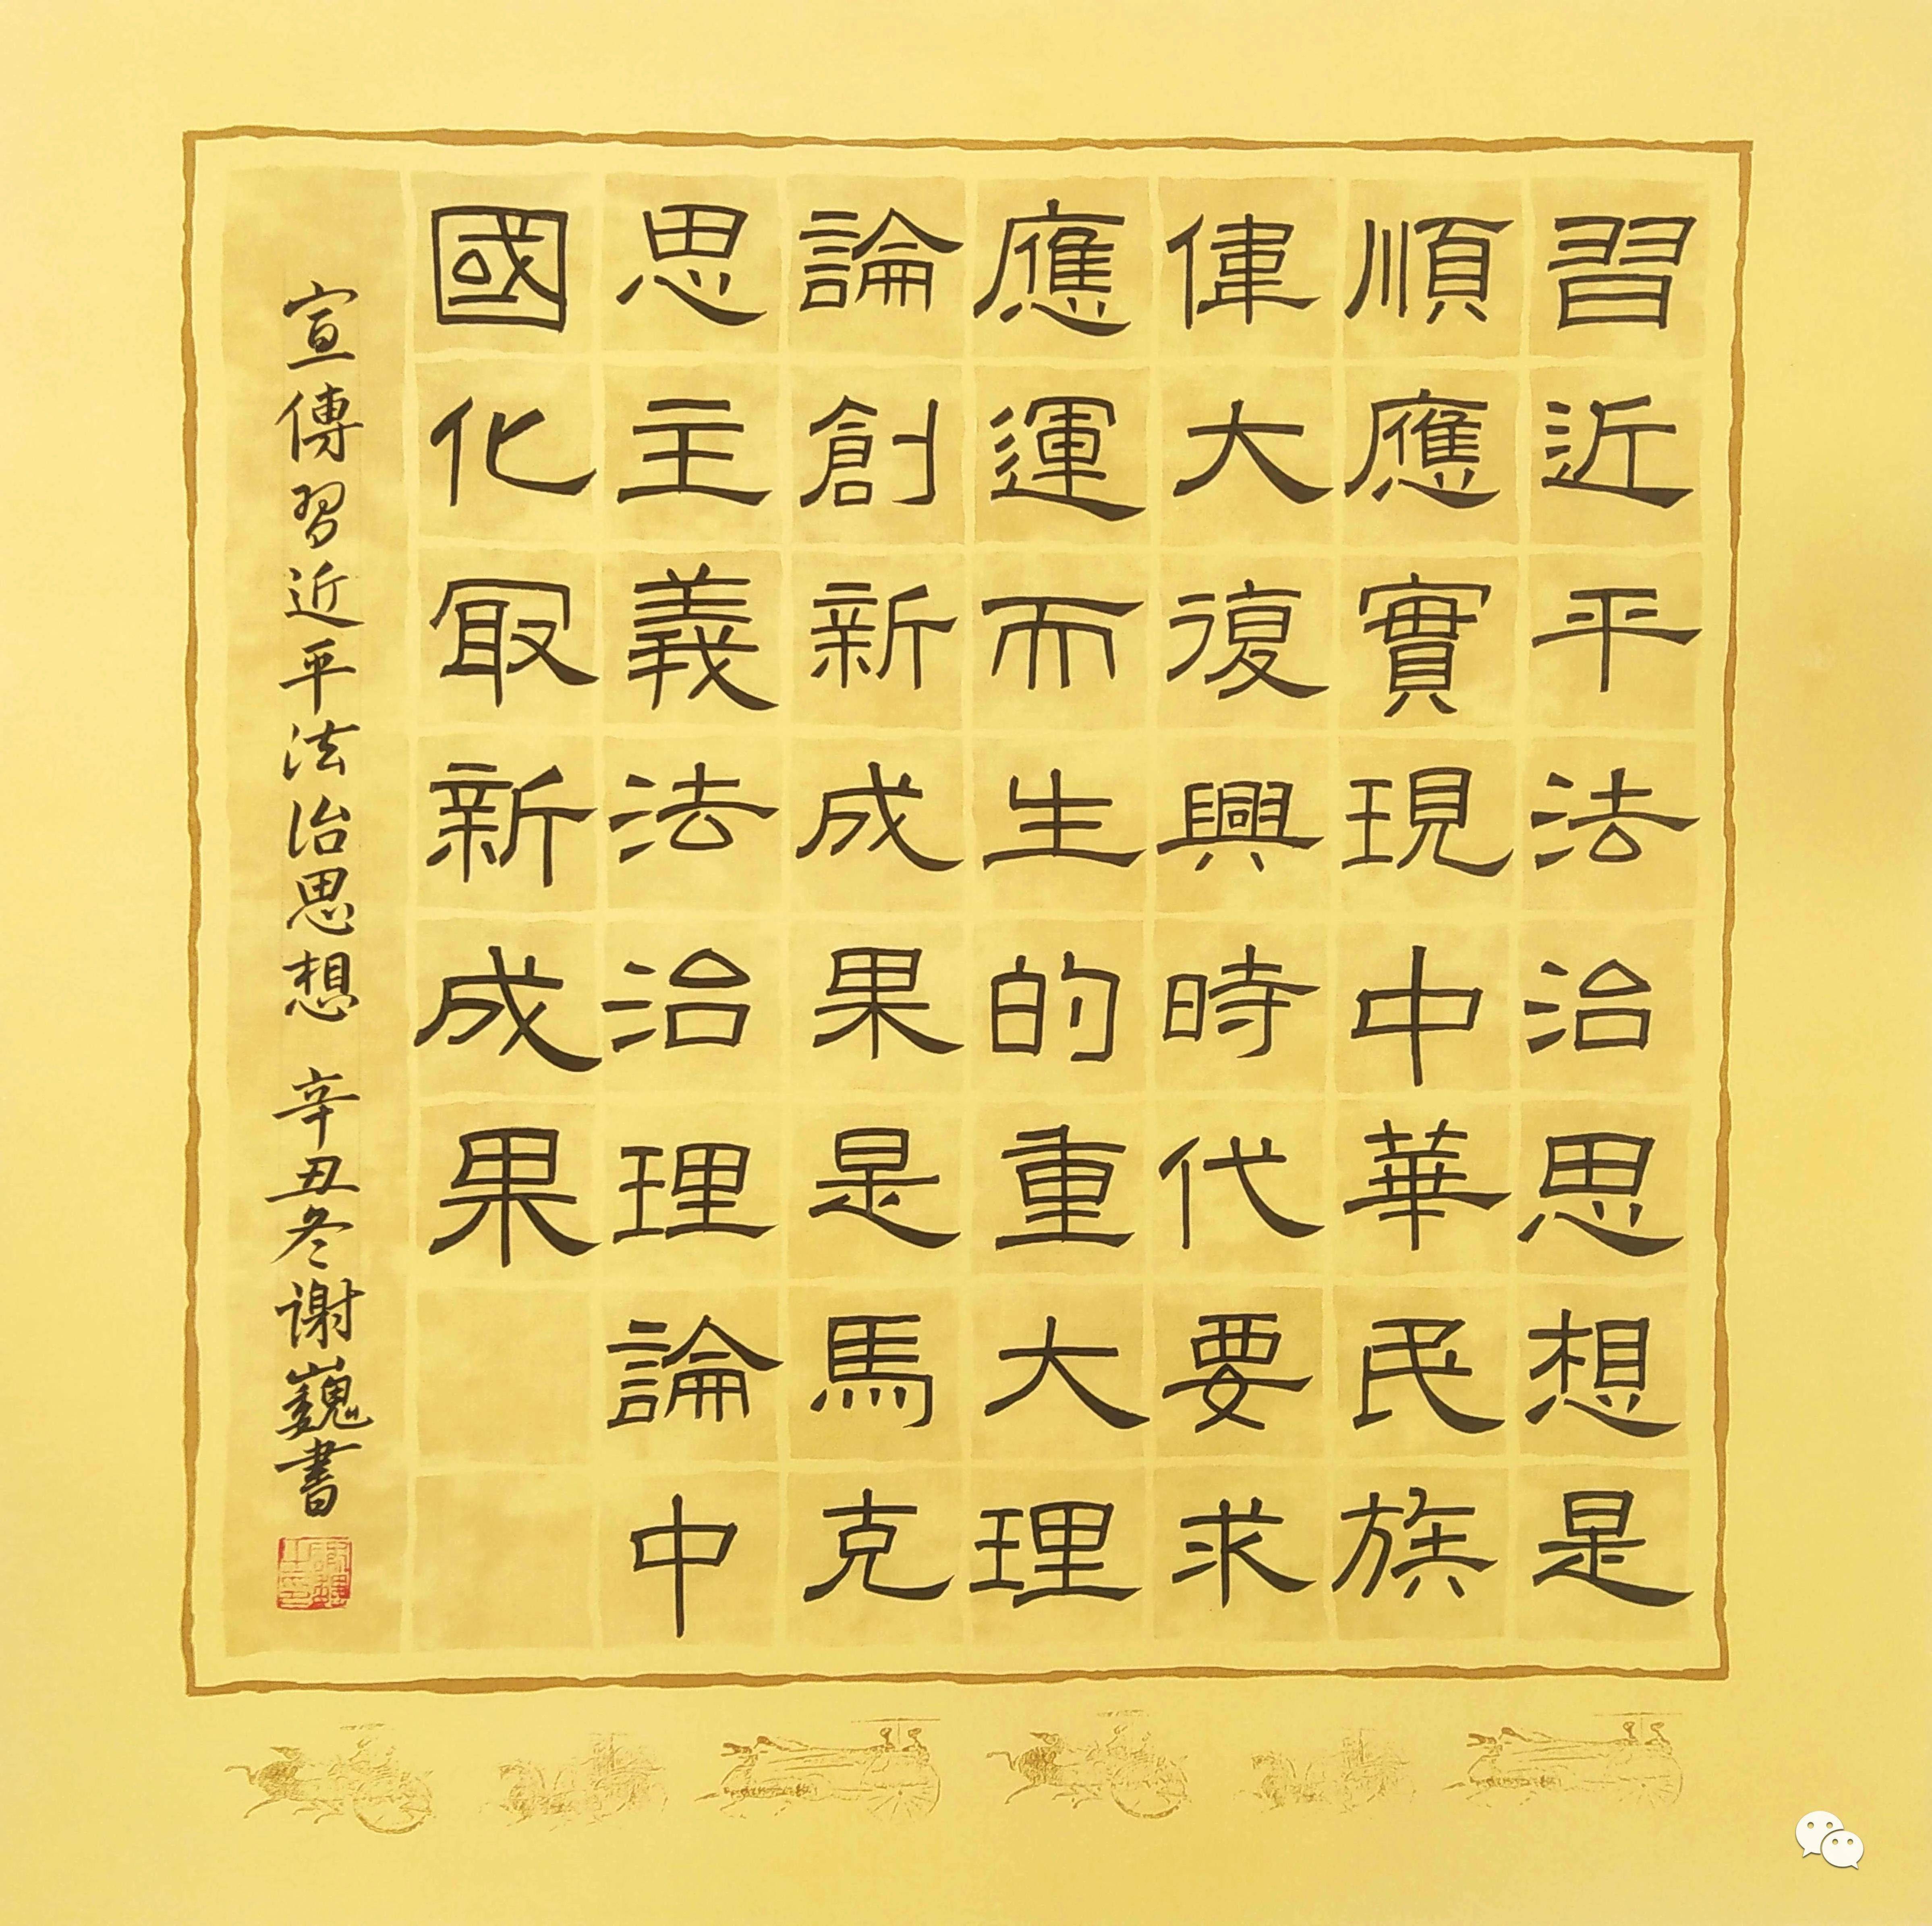 習近平法治思想是
順應實現中華民族
偉大復興時代要求
應運而生的重大理
論創新成果是馬克
思主義法治理論中
國化最新成果
宣傳習近平法治思想 辛丑冬谢巍書